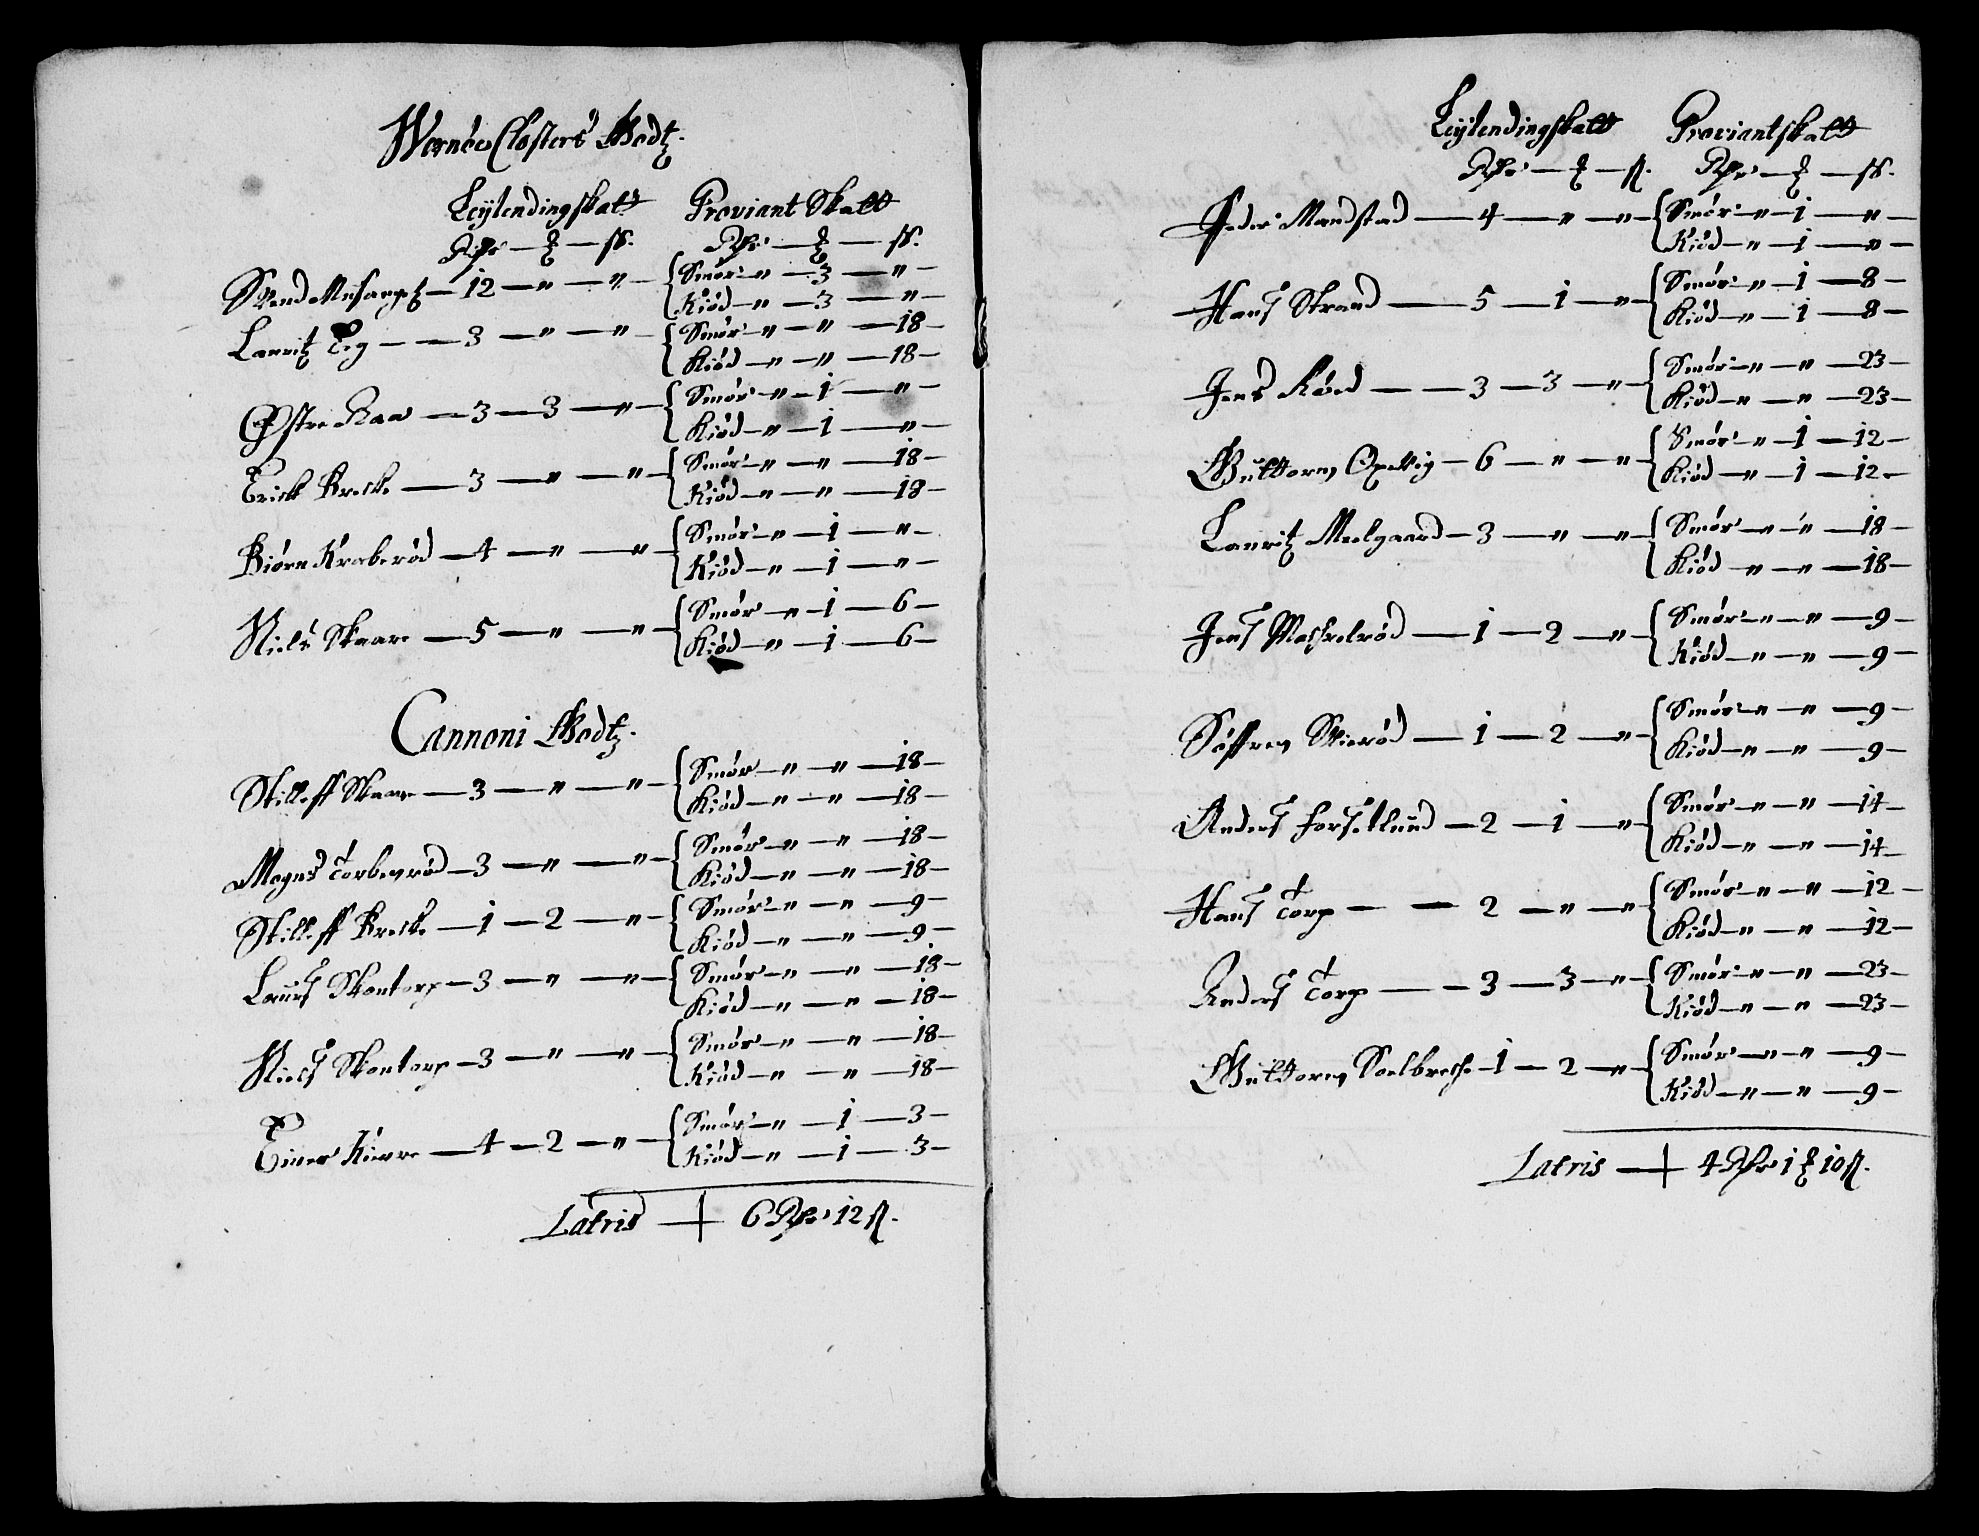 Wernøe Closters Godtz.
Leylendingskatt Proviant Skatt
Rdr — ß. Rdr — ß.
Suend — 12 — „ — „ — Smør — „ — 3 — „ —
Kiød — „ — 3 — „ —
Lauritz Eeg — — 3 — „ — „ — Smør — „ — „ — 18 —
Kiød — „ — „ — 18 —
Østre Raa — 3 — 3 — „ — Smør — „ — 1 — „ —
Kiød — „ — 1 — „ —
Erick Brecke — 3 — „ — „ — Smør — „ — „ — 18 —
Kiød — „ — „ — 18 —
Biørn Kraberød — 4 — „ — „ — Smør — „ — 1 — „ —
Kiød — „ — 1 — „ —
Niels Skaare — 5 — „ — „ — Smør — „ — 1 — 6 —
Kiød — „ — 1 — 6 —
Cannoni Godtz.
Stilleff Skaare — 3 — „ — „ — Smør — „ — „ — 18 —
Kiød — „ — „ — 18 —
Mogns Torbenrød — 3 — „ — „ — Smør — „ — „ — 18 —
Kiød — „ — „ — 18 —
Stilleff Brecke — 1 — 2 — „ — Smør — „ — „ — 9 —
Kiød — „ — „ — 9 —
Laurs Skontorp — 3 — „ — „ — Smør — „ — „ — 18 —
Kiød — „ — „ — 18 —
Niels Skontorp — 3 — „ — „ — Smør — „ — „ — 18 —
Kiød — „ — „ — 18 —
Einer Kierre — 4 — 2 — „ — Smør — „ — 1 — 3 —
Kiød — „ — 1 — 3 —
Latris — 6 Rdr 12 ß.
Leylendingskatt Proviantskatt
Rdr — ß. Rdr — ß.
Peder Mandstad — 4 — „ — „ — Smør — „ — 1 — „ —
Kiød — „ — 1 — „ —
Hans Strand — 5 — 1 — „ — Smør — „ — 1 — 8 —
Kiød — „ — 1 — 8 —
Jens Røed — — 3 — 3 — „ — Smør — „ — „ — 23 —
Kiød — „ — „ — 23 —
Guttorm — 6 — „ — „ — Smør — „ — 1 — 12 —
Kiød — „ — 1 — 12 —
Lauritz Meelgaard — 3 — „ — „ — Smør — „ — „ — 18 —
Kiød — „ — „ — 18 —
Jens — 1 — 2 — „ — Smør — „ — „ — 9 —
Kiød — „ — „ — 9 —
Søffren Skierød — 1 — 2 — „ — Smør — „ — „ — 9 —
Kiød — „ — „ — 9 —
Anders Forsetlund — 2 — 1 — „ — Smør — „ — „ — 14 —
Kiød — „ — „ — 14 —
Hans Torp — — 2 — „ — „ — Smør — „ — „ — 12 —
Kiød — „ — „ — 12 —
Anders Torp — — 3 — 3 — „ — Smør — „ — „ — 23 —
Kiød — „ — „ — 23 —
Guttorm Soelbrecke — 1 — 2 — „ — Smør — „ — „ — 9 —
Kiød — „ — „ — 9 —
Latris — 4 Rdr 1 10 ß.